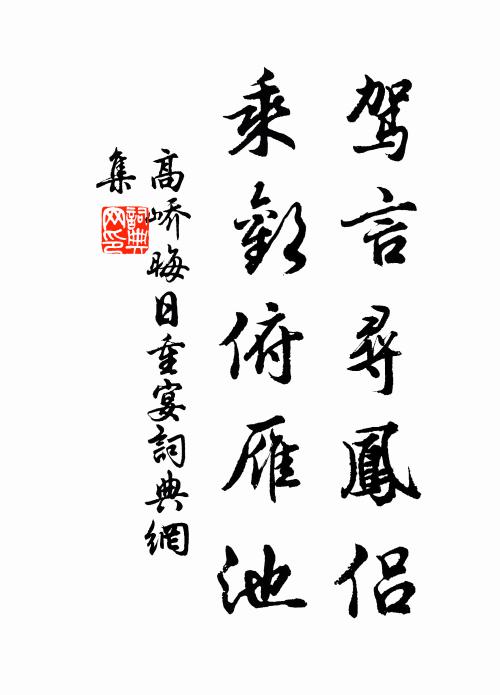 駕言尋鳳侶
乘歡俯雁池
高嶠晦日重宴詞典網
集
詞典網印